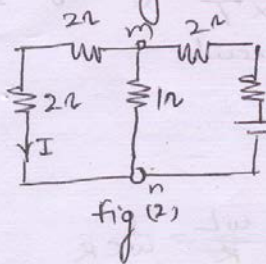 2Ω 2Ω
m
2Ω 1Ω
I
n
fig (2)